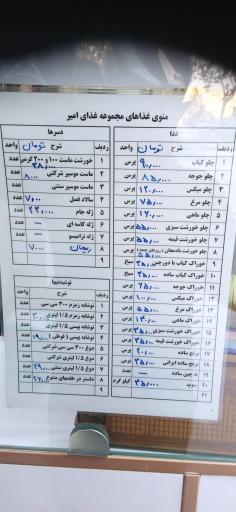 منوی غذاهای مجموعه غذای امیر
غذا
ردیف شرح تومان واحد
۱ چلو کباب ۹۰,۰۰۰ پرس
۲ چلو جوجه ۸۵,۰۰۰ پرس
۳ چلو میکس ۱۲۰,۰۰۰ پرس
۴ چلو مرغ ۷۵,۰۰۰ پرس
۵ چلو ماهی ۱۲۰,۰۰۰ پرس
۶ چلو خورشت سبزی ۵۵,۰۰۰ پرس
۷ چلو خورشت قیمه ۵۵,۰۰۰ پرس
۸ چلو خورشت بادمجان ۵۵,۰۰۰ پرس
۹ خوراک کباب با دورچین ۳۵,۰۰۰ سیخ
۱۰ خوراک کباب ساده سیخ
۱۱ خوراک جوجه ۶۵,۰۰۰ پرس
۱۲ خوراک میکس ۱۰۰,۰۰۰ پرس
۱۳ خوراک مرغ ۵۵,۰۰۰ پرس
۱۴ خوراک ماهی ۱۰۰,۰۰۰ پرس
۱۵ خوراک خورشت سبزی ۳۵,۰۰۰ پرس
۱۶ خوراک خورشت قیمه ۳۵,۰۰۰ پرس
۱۷ برنج ساده ۲۰,۰۰۰ پرس
۱۸ برنج ساده ایرانی ۳۵,۰۰۰ پرس
۱۹ ته چین ساده —
۲۰ سوپ ۳۵,۰۰۰ کیلو گرم
۲۱
دسرها
ردیف شرح تومان واحد
۱ خورشت ماست ۱۰۰ و ۲۰۰ گرمی ۳۸,۰۰۰ عدد
۲ ماست موسیر شرکتی ۸,۰۰۰ عدد
۳ ماست موسیر سنتی عدد
۴ سالاد فصل ۷,۰۰۰ عدد
۵ ژله جام ۲۲,۰۰۰ عدد
۶ ژله کاسه ای — عدد
۷ ژله ترامیسو — عدد
۸ ریحان ۷,۰۰۰
۹
نوشیدنیها
ردیف شرح واحد
۱ نوشابه زمزم ۳۰۰ سی سی عدد
۲ نوشابه زمزم ۱/۵ لیتری عدد
۳ نوشابه پپسی ۱/۵ لیتری عدد
۴ نوشابه پپسی ( قوطی ) ۱۹,۰۰۰ عدد
۵ دوغ ۳۰۰ سی سی شرکتی عدد
۶ دوغ ۱/۵ لیتری شرکتی عدد
۷ دوغ ۱/۵ لیتری سنتی ۲۹,۰۰۰ عدد
۸ دلستر در طعمهای متنوع ۲۶,۰۰۰ عدد